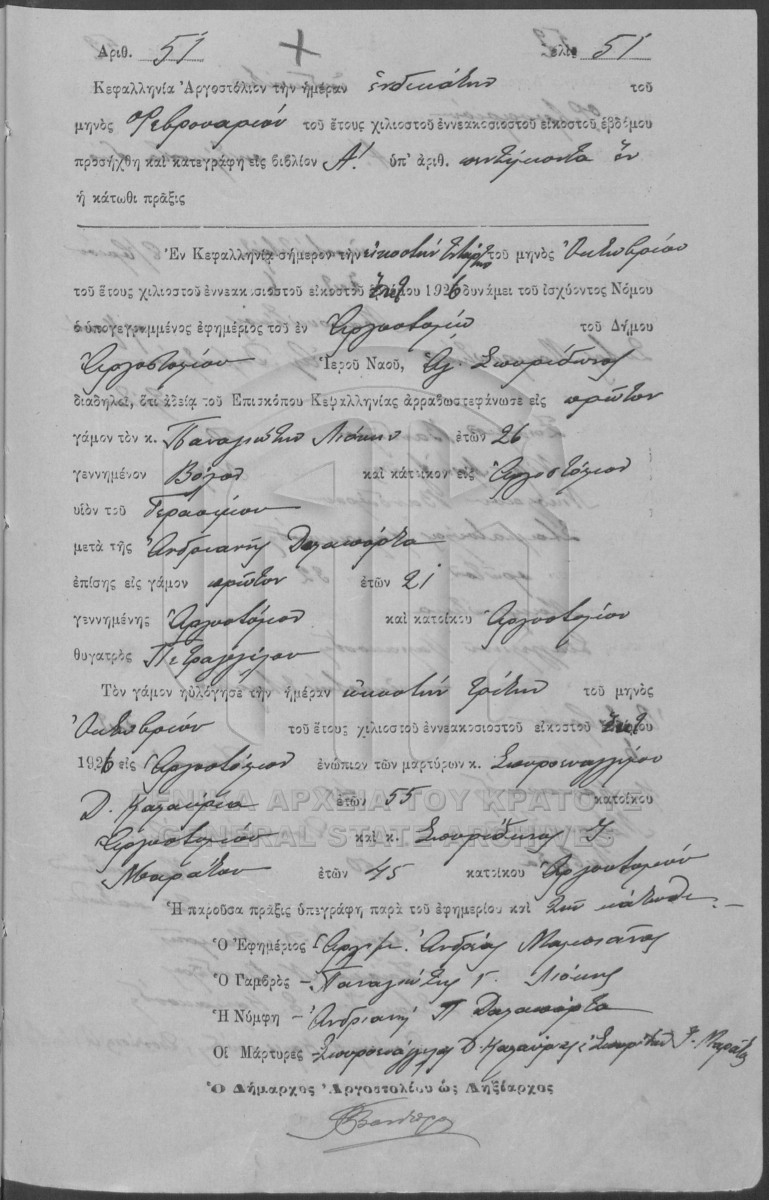 Ἀριθ. 51 σελὶς 51
Κεφαλληνία Ἀργοστόλιον τὴν ἡμέραν ἑνδεκάτην τοῦ
μηνὸς Φεβρουαρίου τοῦ ἔτους χιλιοστοῦ ἐννεακοσιοστοῦ εἰκοστοῦ ἑβδόμου
προσήχθη καὶ κατεγράφη εἰς βιβλίον Α! ὑπ' ἀριθ. πεντήκοντα ἓν
ἡ κάτωθι πρᾶξις
Ἐν Κεφαλληνίᾳ σήμερον τὴν εἰκοστὴν τετάρτην τοῦ μηνὸς Ὀκτωβρίου
τοῦ ἔτους χιλιοστοῦ ἐννεακοσιοστοῦ εἰκοστοῦ ἕκτου 1926 δυνάμει τοῦ ἰσχύοντος Νόμου
ὁ ὑπογεγραμμένος ἐφημέριος τοῦ ἐν Ἀργοστολίῳ τοῦ Δήμου
Ἀργοστολίου Ἱεροῦ Ναοῦ, Ἁγ. Σπυρίδωνος
διαδηλοῖ, ὅτι ἀδείᾳ τοῦ Ἐπισκόπου Κεφαλληνίας ἀρραβωστεφάνωσε εἰς πρῶτον
γάμον τὸν κ. Παναγιώτην Λιόκην ἐτῶν 26
γεννημένον Βόλον καὶ κάτοικον εἰς Ἀργοστόλιον
υἱὸν τοῦ Γερασίμου
μετὰ τῆς Ἀνδριανῆς Δαλαπόρτα
ἐπίσης εἰς γάμον πρῶτον ἐτῶν 21
γεννημένης Ἀργοστόλιον καὶ κατοίκου Ἀργοστολίου
θυγατρὸς Πετραγγέλου
Τὸν γάμον ηὐλόγησε τὴν ἡμέραν εἰκοστὴν τρίτην τοῦ μηνὸς
Ὀκτωβρίου τοῦ ἔτους χιλιοστοῦ ἐννεακοσιοστοῦ εἰκοστοῦ ἕκτου
1926 εἰς Ἀργοστόλιον ἐνώπιον τῶν μαρτύρων κ. Σπυροευαγγέλου
Δ. ἐτῶν 55 κατοίκου
Ἀργοστολίου καὶ κ. Σπυρίδωνος
Μαράτου ἐτῶν 45 κατοίκου Ἀργοστολίου
Ἡ παροῦσα πρᾶξις ὑπεγράφη παρὰ τοῦ ἐφημερίου καὶ τῶν κάτωθι
Ὁ Ἐφημέριος Ἀρχιμ. Ἀνδρέας
Ὁ Γαμβρὸς - Παναγιώτης Γ. Λιόκης
Ἡ Νύμφη - Ἀνδριανὴ Π. Δαλαπόρτα
Οἱ Μάρτυρες - Σπυροευάγγελος Δ.
Ὁ Δήμαρχος Ἀργοστολίου ὡς Ληξίαρχος
ΓΕΝΙΚΑ ΑΡΧΕΙΑ ΤΟΥ ΚΡΑΤΟΥΣ
GENERAL STATE ARCHIVES